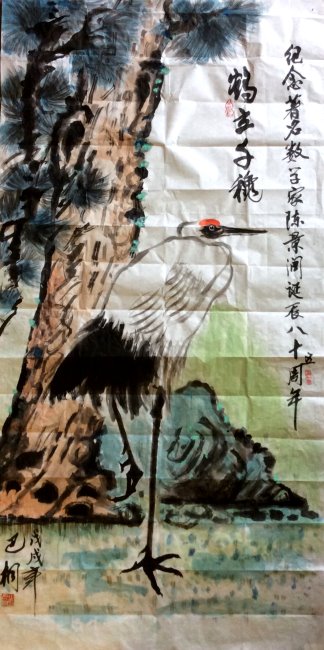 纪念著名数学家陈景润诞辰八十五周年
鹤寿千穐
戊戌年
巴桐